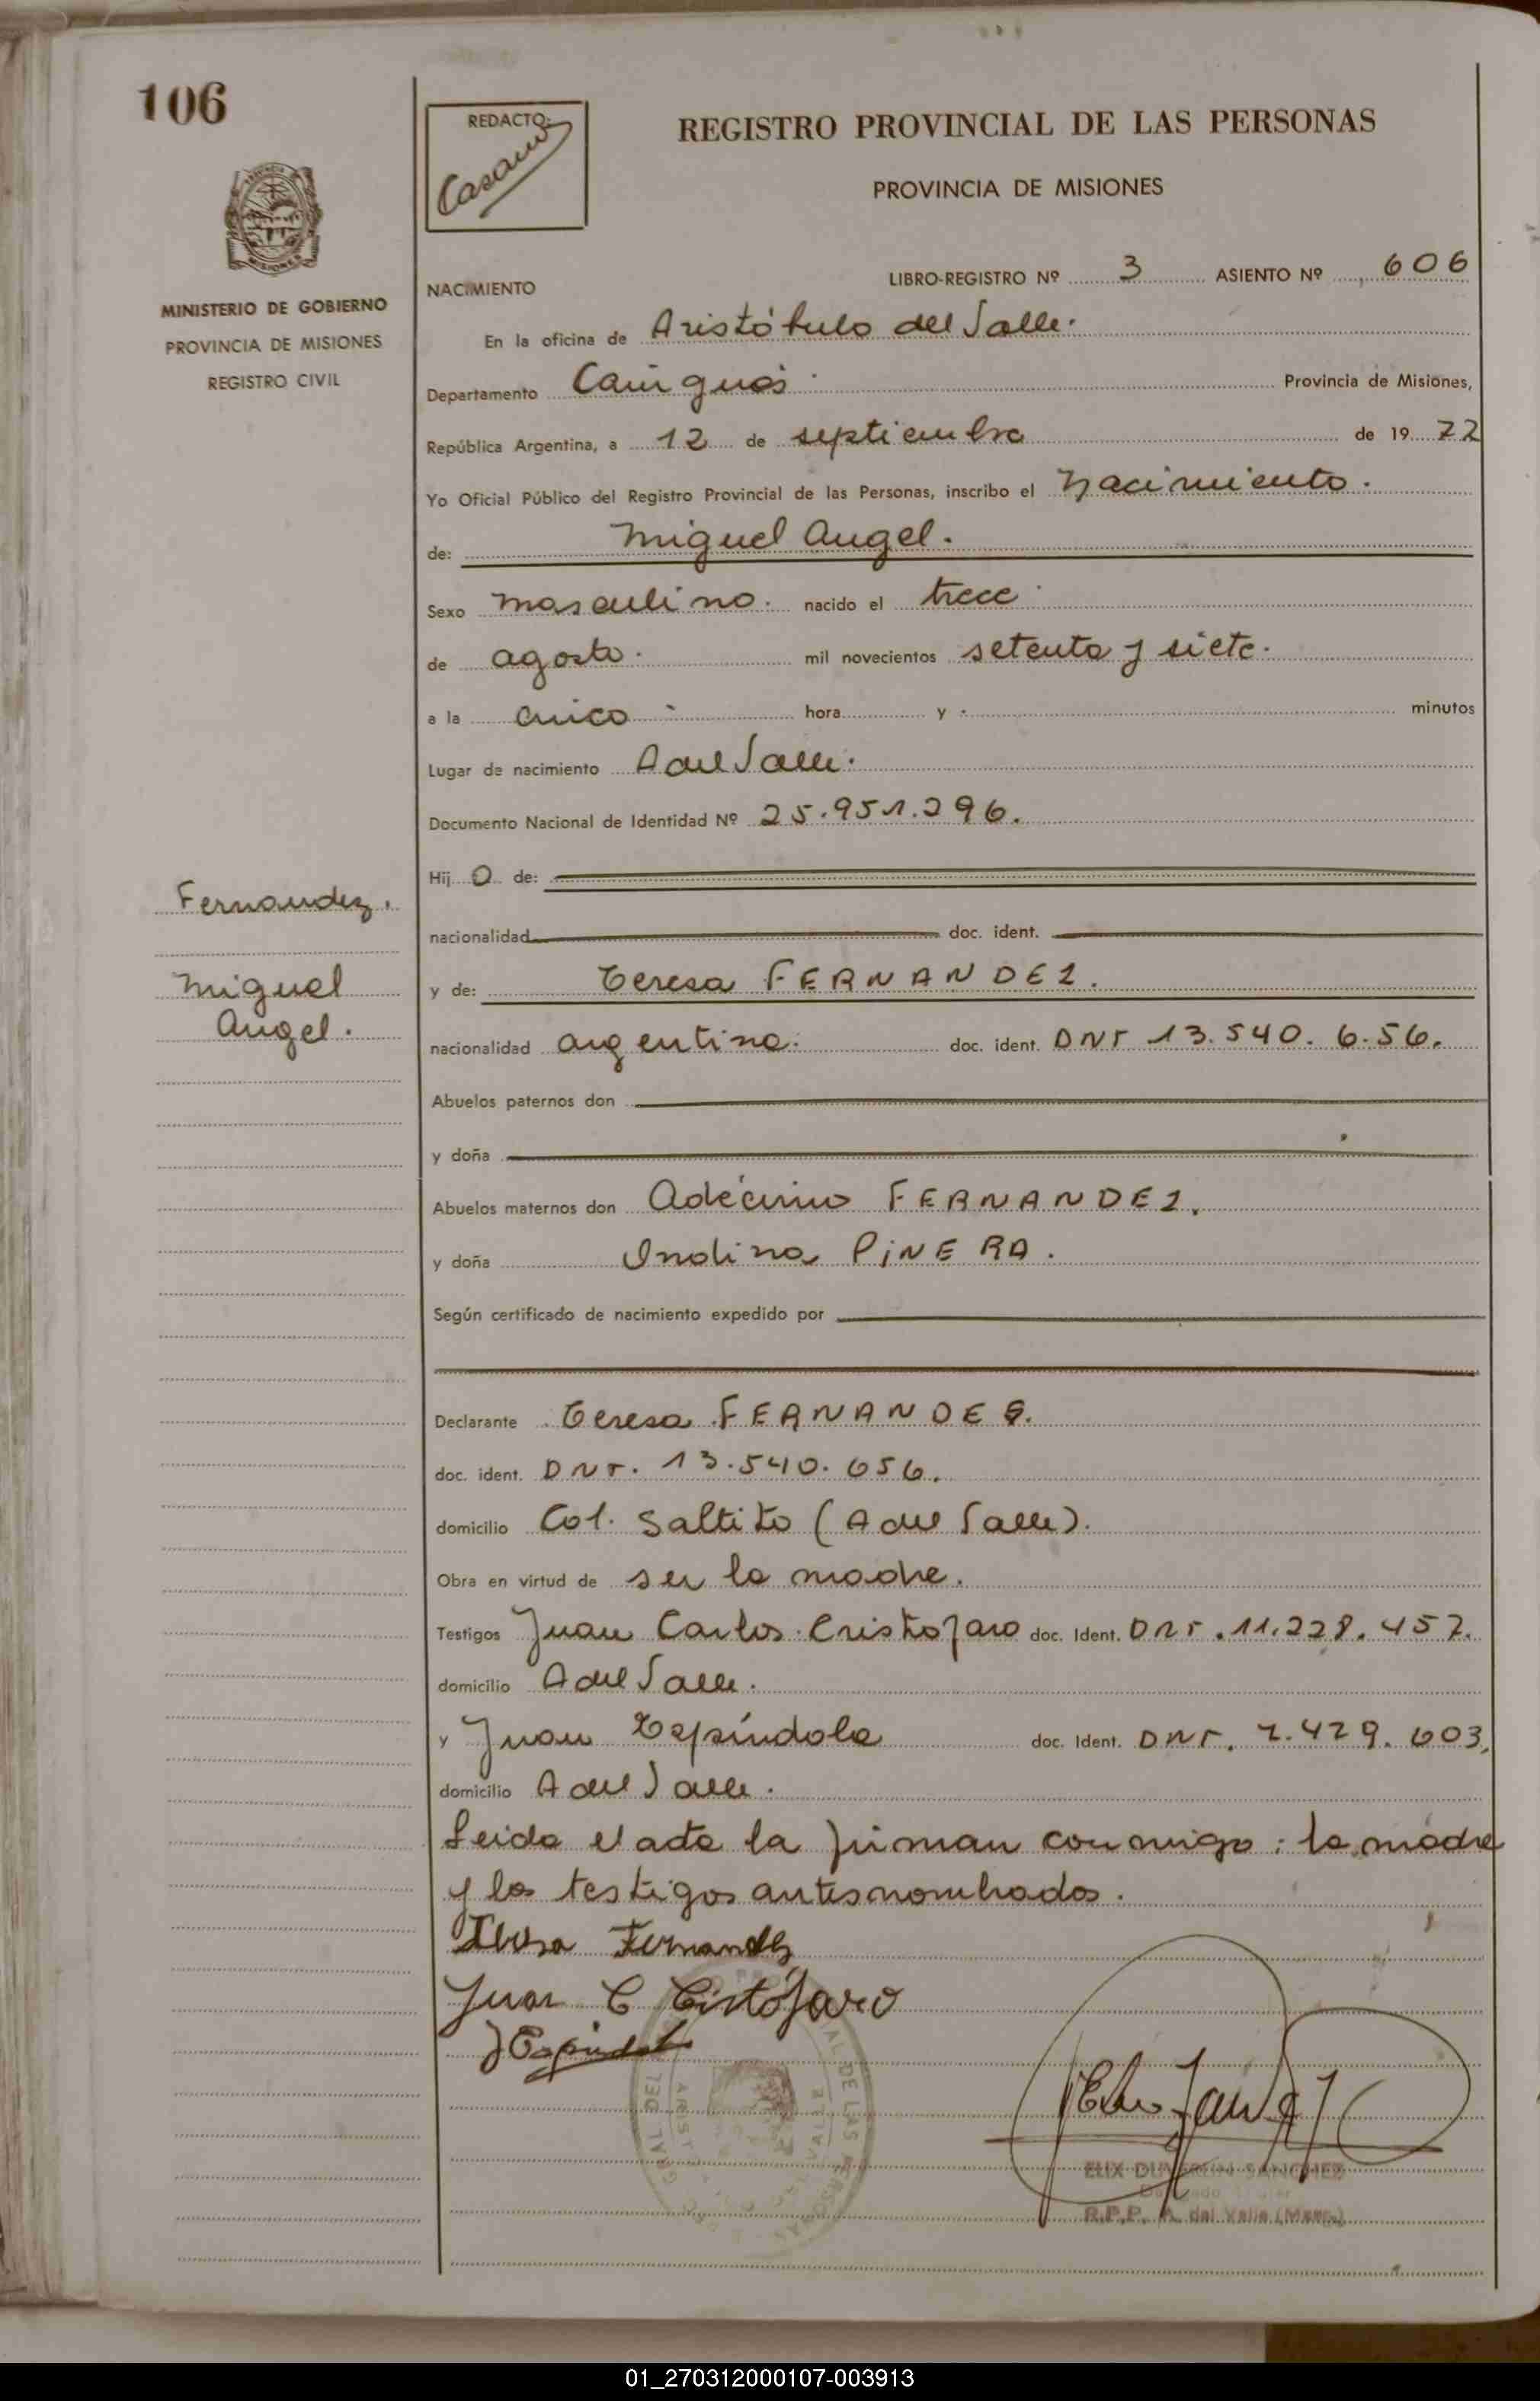 106
REDACTO:
Casano
REGISTRO PROVINCIAL DE LAS PERSONAS
PROVINCIA DE MISIONES
MISIONES
MINISTERIO DE GOBIERNO
PROVINCIA DE MISIONES
REGISTRO CIVIL
NACIMIENTO
LIBRO-REGISTRO Nº 3 ASIENTO Nº 606
En la oficina de Aristóbulo del Valle.
Departamento Cainguás Provincia de Misiones,
República Argentina, a 12 de septiembre de 1977
Yo Oficial Público del Registro Provincial de las Personas, inscribo el nacimiento.
de: Miguel Angel.
Sexo masculino. nacido el trece
de agosto. mil novecientos setenta y siete.
a la cinco hora y minutos
Lugar de nacimiento A del Valle.
Documento Nacional de Identidad Nº 25.951.296.
Hij o de:
nacionalidad doc. ident.
Fernandez.
Miguel
Angel.
y de: Teresa FERNANDEZ.
nacionalidad argentina. doc. ident. DNI 13.540.656.
Abuelos paternos don
y doña
Abuelos maternos don FERNANDEZ.
y doña Indina PiNERA.
Según certificado de nacimiento expedido por
Declarante Teresa FERNANDEZ.
doc. ident. DNI. 13.540.656.
domicilio Col. Saltito (A del Valle).
Obra en virtud de ser la madre.
Testigos Juan Carlos Cristofaro doc. Ident. DNI. 11.228.457.
domicilio A del Valle.
y Juan Espíndola doc. Ident. DNI. 7.429.603,
domicilio A del Valle.
Leida el acta la firman conmigo: la madre
y los testigos antesnombrados.
Teresa Fernandez
Juan C Cristófaro
J Espindola
SANCHEZ
R.P.P. A. del Valle (Mnes.)
01_270312000107-003913